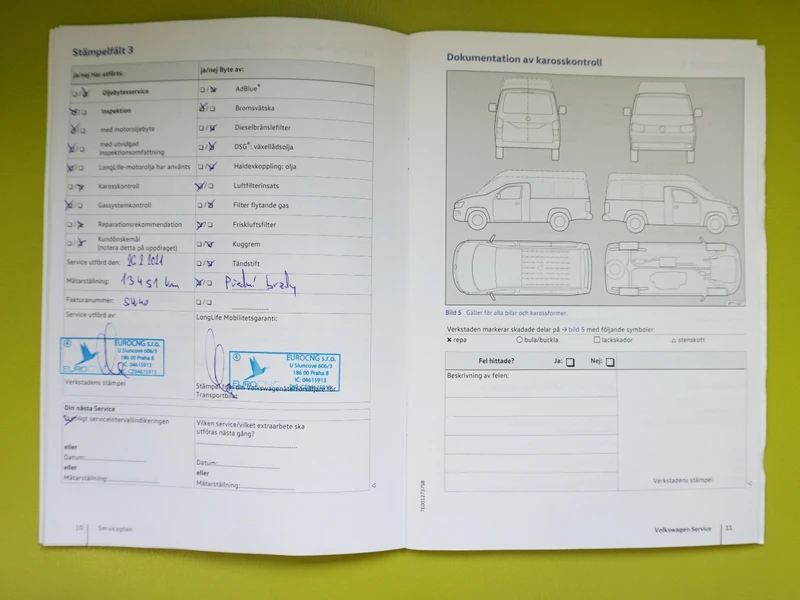 Stämpelfält 3
ja/nej Har utförts:
ja/nej Byte av:
Oljebytesservice
AdBlue®
Inspektion
Bromsvätska
med motoroljebyte
Dieselbränslefilter
med utvidgad
inspektionsomfattning
DSG®: växellådsolja
LongLife-motorolja har använts
Haldexkoppling: olja
Karosskontroll
Luftfilterinsats
Gassystemkontroll
Filter flytande gas
Reparationsrekommendation
Friskluftsfilter
Kundönskemål
(notera detta på uppdraget)
Kuggrem
Service utförd den:
Tändstift
Mätarställning: 13451 km
Přední brzdy
Fakturanummer:
Service utförd av:
LongLife Mobilitetsgaranti:
EUROCNG s.r.o.
U Sluncové 606/3
186 00 Praha 8
IČ: 04615913
EUROCNG s.r.o.
U Sluncové 606/3
186 00 Praha 8
IČ: 04615913
Verkstadens stämpel
Transportbilar
Din nästa Service
Enligt serviceintervallindikeringen
Vilken service/vilket extraarbete ska
utföras nästa gång?
eller
Datum:
eller
Mätarställning:
Datum:
eller
Mätarställning:
10 Serviceplan
Dokumentation av karosskontroll
Bild 5 Gäller för alla bilar och karossformer.
Verkstaden markerar skadade delar på → bild 5 med följande symboler:
× repa
○ bula/buckla
□ lackskador
△ stenskott
Fel hittade?
Ja:
Nej:
Beskrivning av felen:
Verkstadens stämpel
Volkswagen Service 11